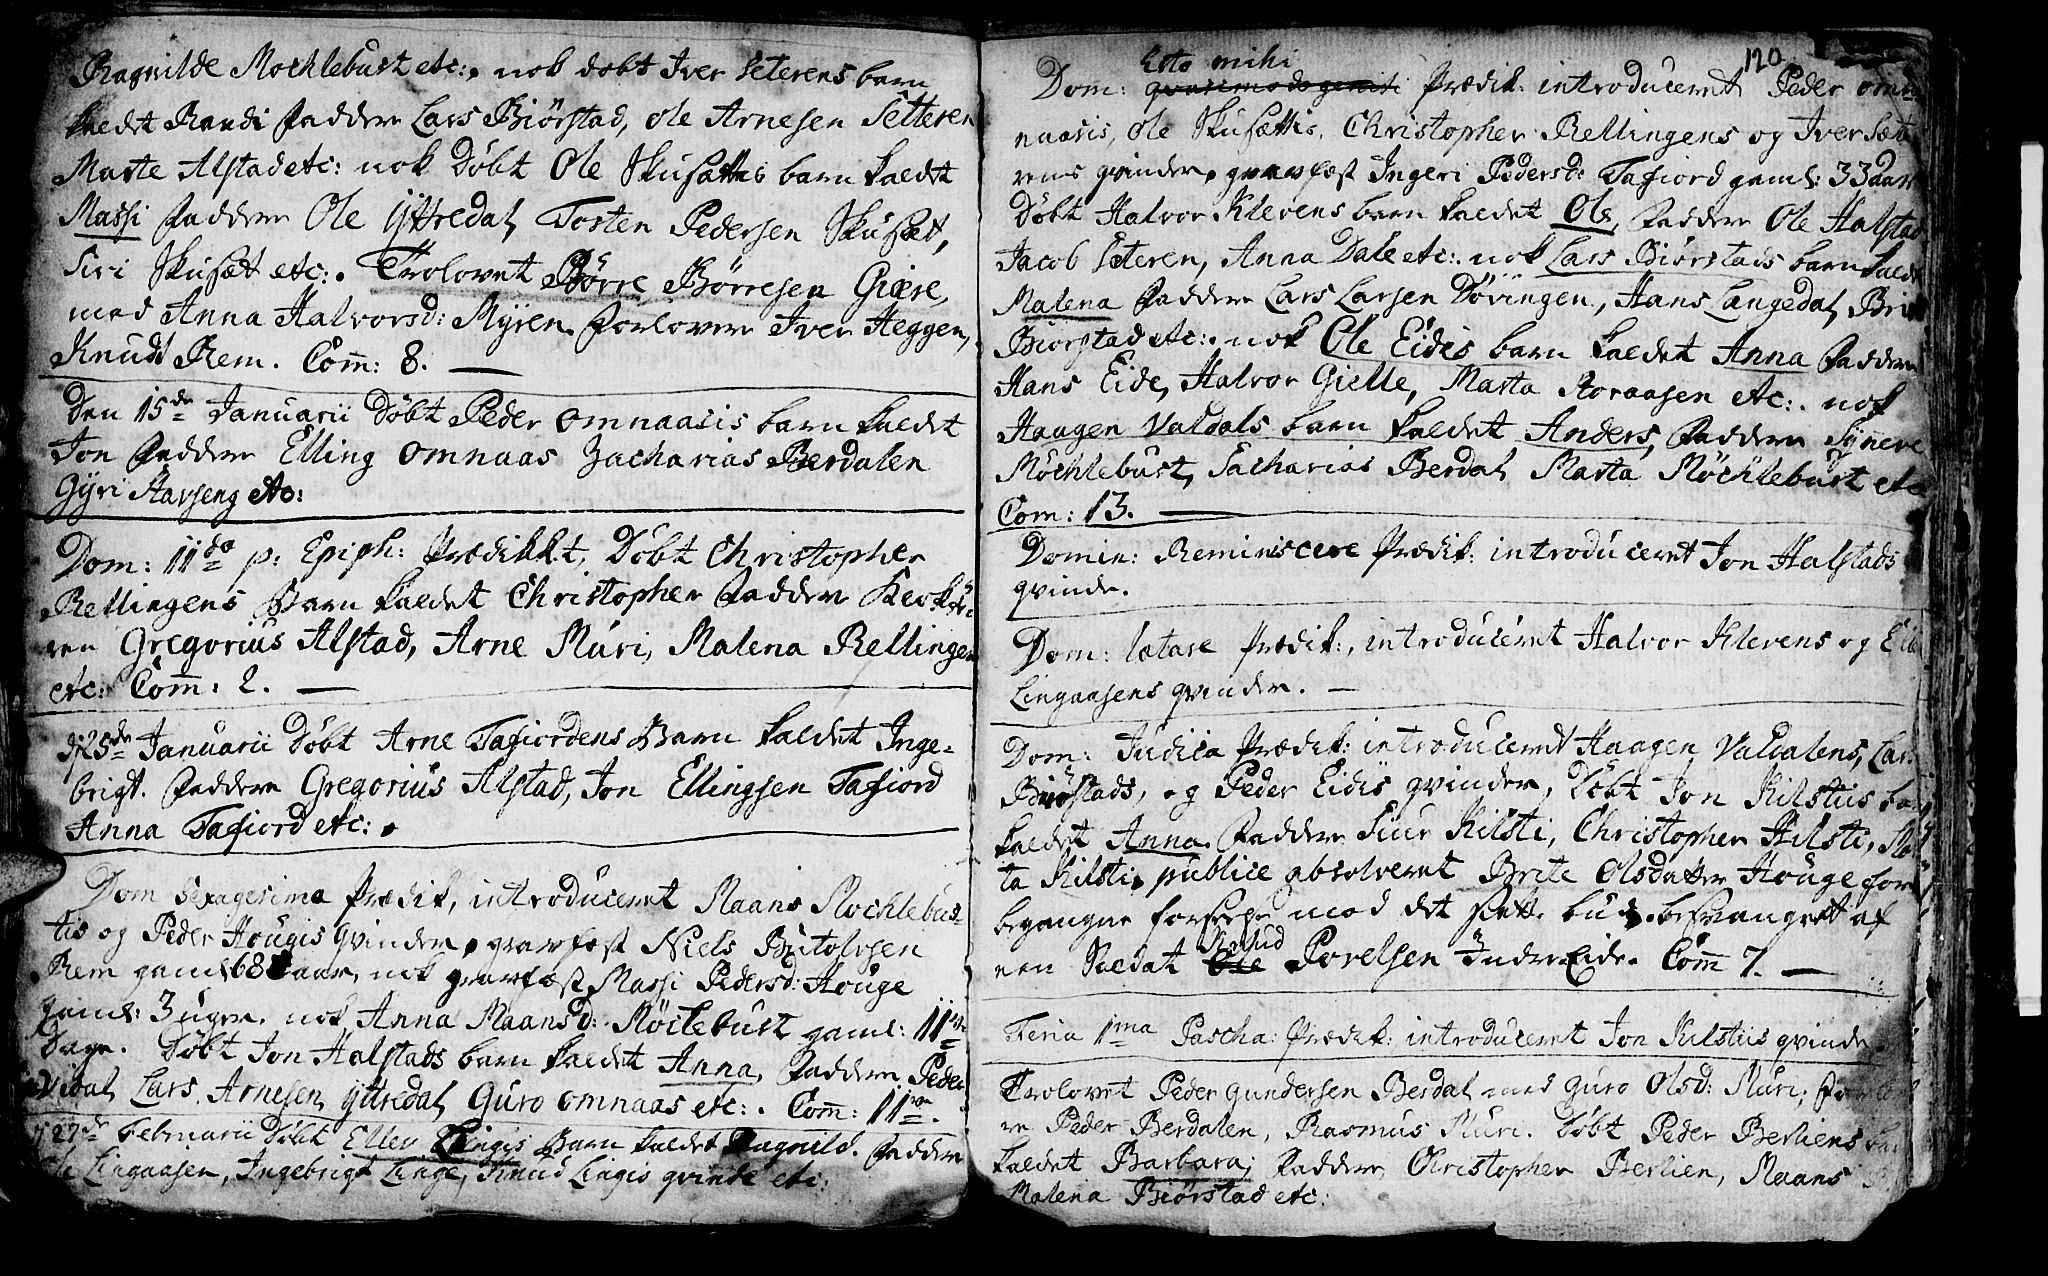 Ragnilde Mochlebust etc: nok døbt Iver Seterens barn
kaldet Randi Faddere Lars Biørstad, Ole Arnesen Setteren
Marte Alstad etc: nok Døbt Ole Skusættis barn kaldet
Massi Faddere Ole Yttredal, Torsten Pedersen Skusæt,
Siri Skusæt etc: Trolovet Børre Børresen Giære,
med Anna Halvorsd: Myren. Forlovere Iver Heggen,
Knudt Rem. Com̄: 8.
Den 15de Januarii Døbt Peder Omnaasis barn kaldet
Jon Faddere Elling Omnaas Zacharias Berdalen
Gyri Aarseng etc:
Dom: IIda p: Epiph: Prædikkt, Døbt Christopher
Rellingens Barn kaldet Christopher Faddere
Gregorius Alstad, Arne Muri, Malena Rellingen
etc: Com̄: 2.
25de Januarii Døbt Arne Tafiordens Barn kaldet Inge-
brigt. Faddere Gregorius Alstad, Jon Ellingsen Tafiord
Anna Tafiord etc:
Dom Sexagesima Prædik, introduceret Maans Mochlebus-
tis og Peder Hougis qvinder, gravfæst Niels Britolvsen
Rem gaml 68 aar, nok gravfæst Massi Pedersd: Houge
gaml: 3 uger. nok Anna Maansd: Möclebust gaml: 11
Dage. Døbt Jon Halstads barn kaldet Anna, Faddere Peder
Lars Arnesen Yttredal, Guro Omnaas etc: Com̄: 11
27de Februarii Døbt Ellev Lingis Barn kaldet Ragnild. Faddere
Ole Lingaasen, Ingebrigt Linge, Knud Lingis qvinde etc:
120
Esto mihi
Dom: quasimodogeniti Prædik: introduceret Peder Om-
naasis, Ole Skusættis, Christopher Rellingens og Iver Sæte
rens qvinder, gravfæst Ingeri Pedersd: Tafiord gaml: 33 aar
Døbt Halvor Klevens barn kaldet Ole, Faddere Ole Halstad
Jacob Seteren, Anna Dale etc: nok Lars Biørstads barn kaldt
Malena Faddere Lars Larsen Døvingen, Hans Langedal,
Biørstad etc: nok Ole Eidis barn kaldet Anna Faddere
Hans Eide, Halvor Gielle, Marta Roraasen etc: nok
Haagen Valdals barn kaldet Anders, Faddere Synneve
Möchlebust, Sacharias Berdal, Marta Möchlebust etc
Com: 13.
Domin: Reminiscere Prædik: introduceret Jon Halstads
qvinde.
Dom: lætare Prædik:, introduceret Halvor Klevens og
Lingaasens qvinder.
Dom: Judica Prædik: introduceret Haagen Valdalens, Lars
Biørstads, og Peder Eidis qvinder, Døbt Jon Kilstiis
kaldet Anna Faddere Siur Kilsti, Christopher Kilsti, Mar
ta Kilsti, publice absolveret Brite Olsdatter Houge for
begangne forseelse mod det siette bud. besvangret af
Knud
een Soldat Ole Povelsen Indre Eide. Com̄ 7.
Feria 1ma Pascha: Prædik: introduceret Jon Kilstiis qvinde.
Trolovet Peder Gundersen Berdal med Guro Olsd: Muri, Forlo
re Peder Berdalen, Rasmus Muri. Døbt Peder Berliens
kaldet Barbara, Faddere Christopher Berlien, Maans
Malena Biørstad etc: